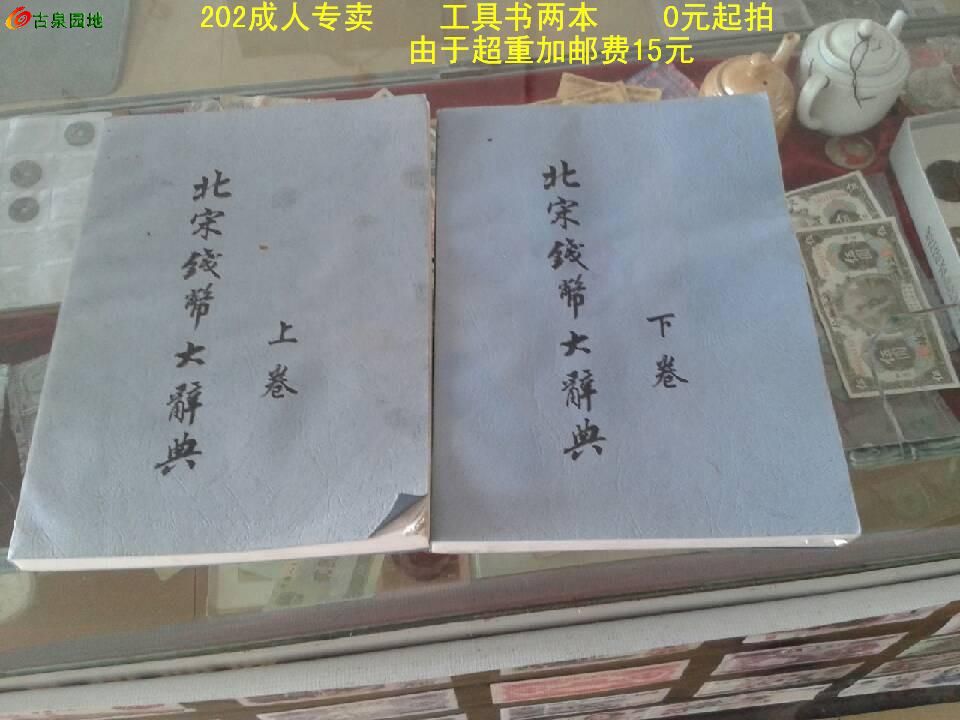 古泉园地
202成人专卖 工具书两本 0元起拍
由于超重加邮费15元
北宋钱幣大辭典
上卷
北宋钱幣大辭典
下卷
伍佰
伍佰